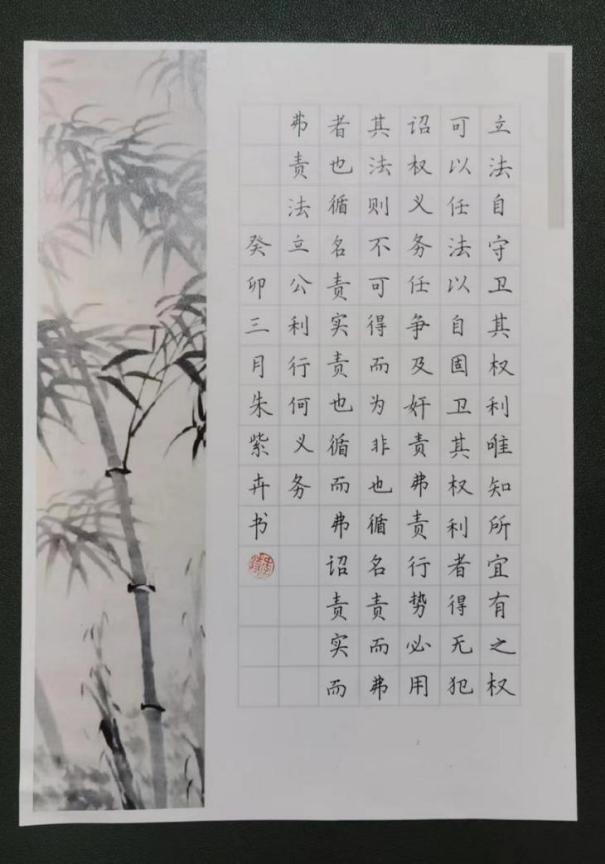 立法自守卫其权利唯知所宜有之权
可以任法以自固卫其权利者得无犯
诏权义务任争及奸责弗责行势必用
其法则不可得而为非也循名责而弗
者也循名责实责也循而弗诏责实而
弗责法立公利行何义务
癸卯三月朱紫卉书